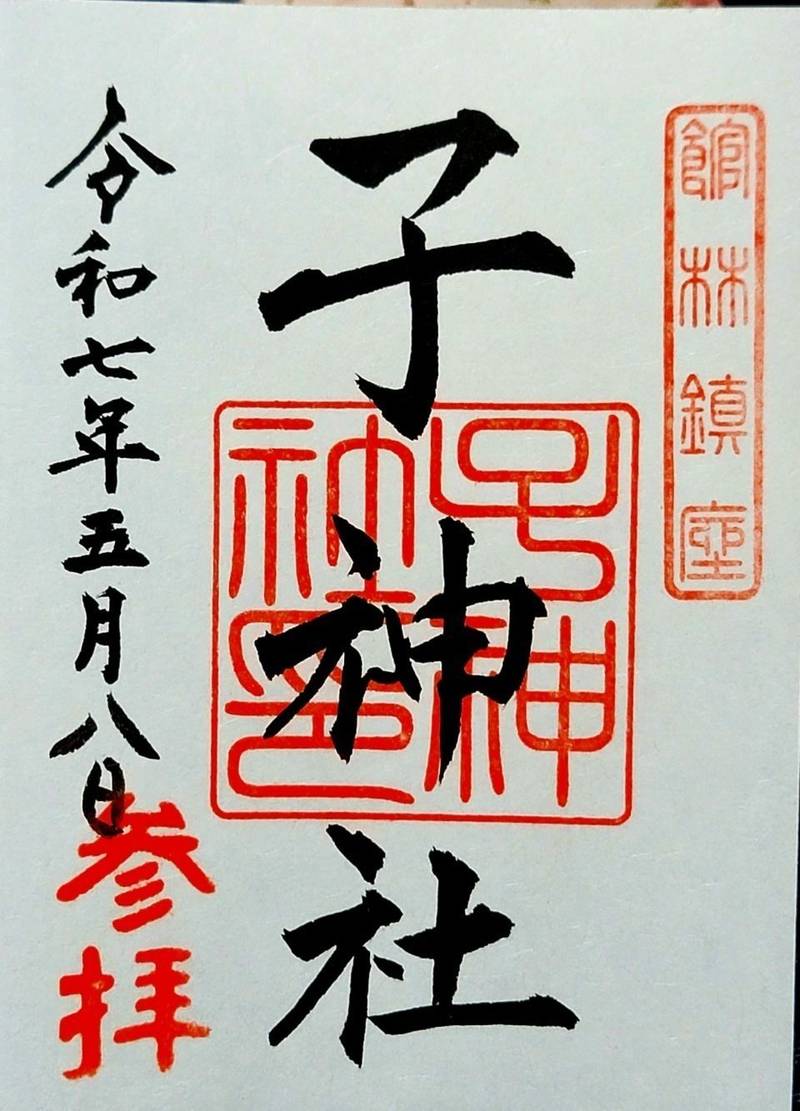 館林鎮座
子神社
子神社印
令和七年五月八日
参拝